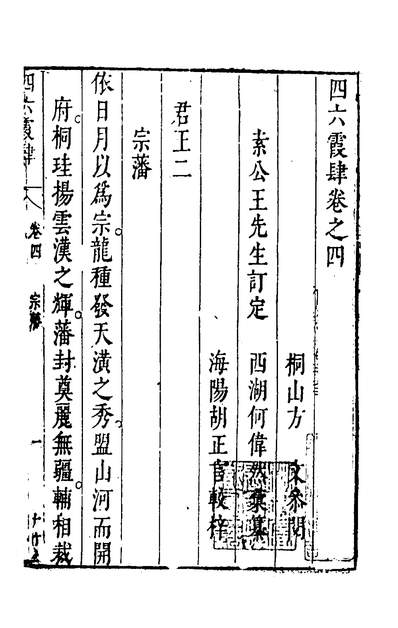 四六霞肆卷之四
桐山方 文參閱
素公王先生訂定 西湖何偉然彙纂
海陽胡正言較梓
君王二
宗藩
依日月以爲宗龍種發天潢之秀盟山河而開
府桐珪揚雲漢之輝藩封奠麗無疆輔相裁
四六霞肆 卷四 宗藩 一